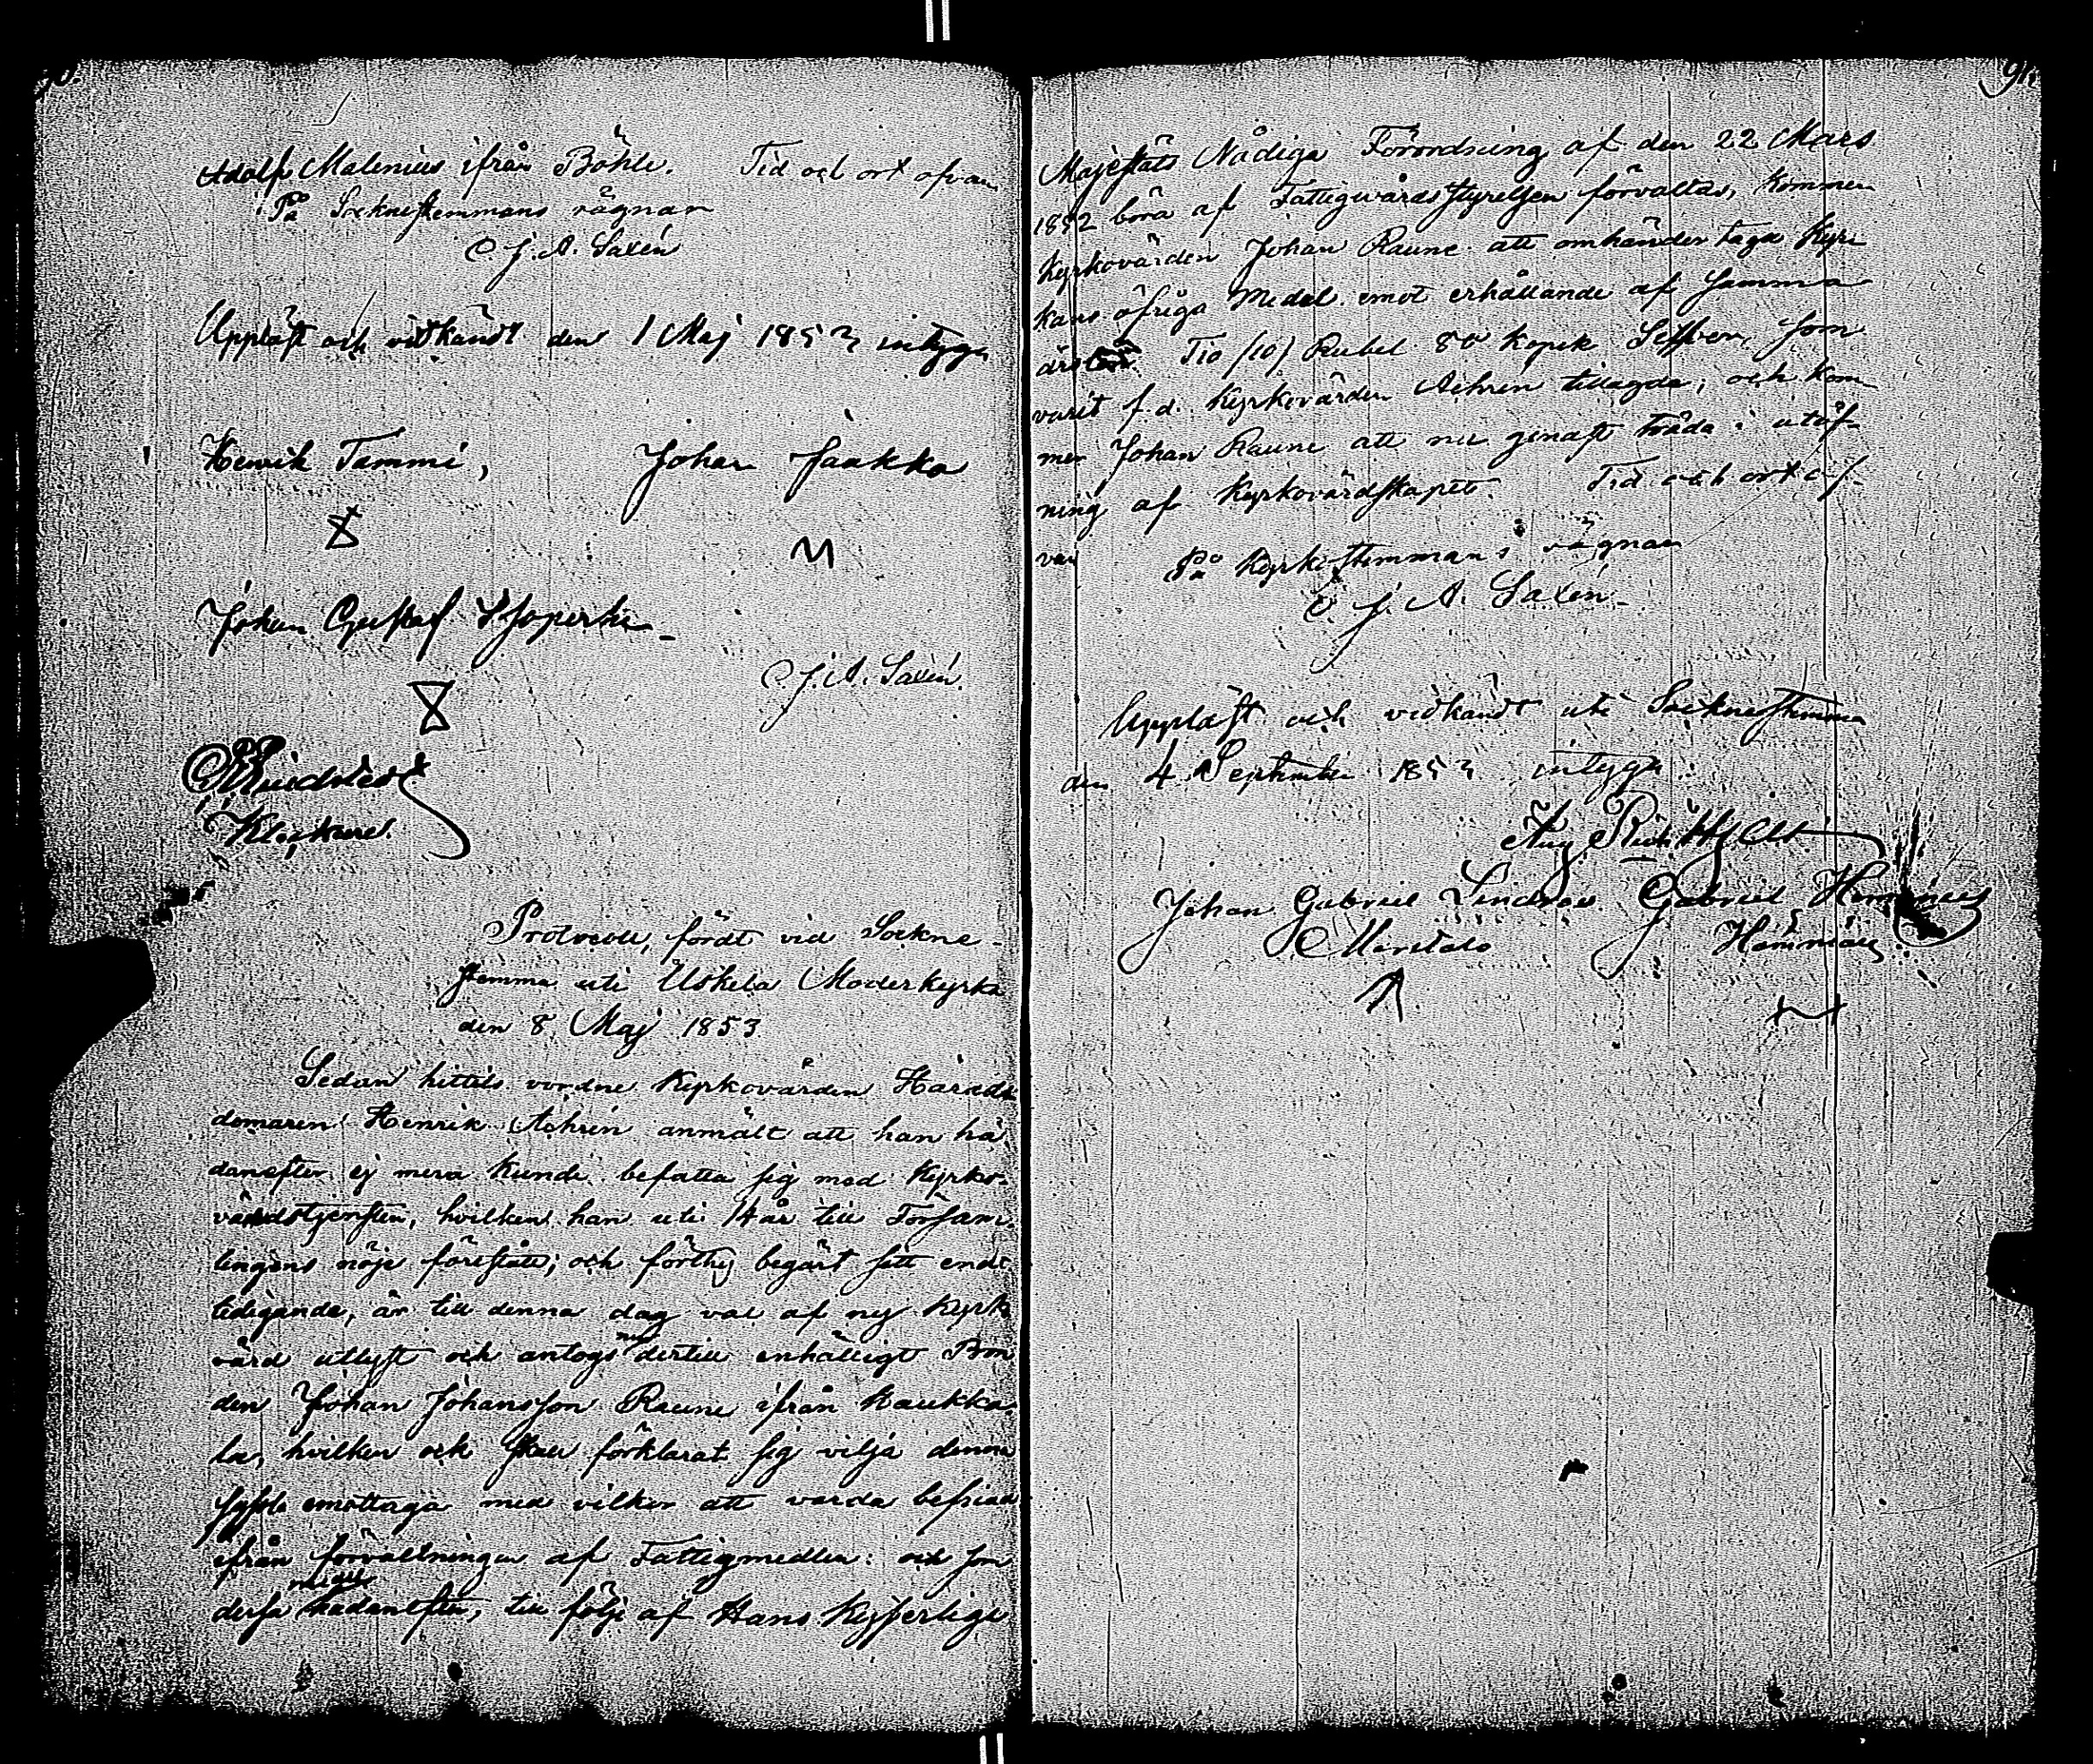 90.
Adolf Malenius ifrån Böhle. Tid och ort ofvan
På Sockenstemmans vägnar
C. J. A. Saxén
Uppläst och vidkändt den 1 Maj 1853 intyga
Henrik Tammi, Johan Jaakko
Johan Gustaf
C. J. A. Saxén.
Klockare.
Protocoll, fördt vid Sockne-
stemma uti Uskela Moderkyrka
den 8 Maj 1853
Sedan hittils vordne Kyrkovärden Härads
domaren Henrik Achrén anmält att han hä
danefter ej mera kunde befatta sig med Kyrko-
värdstjensten, hvilken han uti 14 år till Försam-
lingens nöje förestått; och förthy begärt sitt ent
ledigande, är till denna dag val af ny Kyrk
värd utlyst och antogs nu dertill enhälligt Bon
den Johan Johansson Raune ifrån Haukka
la, hvilken ock skall förklarat sig vilja denna
syssla emottaga med vilkor att varda befriad
ifrån förvaltningen af Fattigmedlen: och som
dessa medel hädanefter, till följe af Hans Kejserliga
91.
Majestäts Nådiga Förordning af den 22 Mars
1852 böra af Fattigvårds Styrelsen förvaltas, kommer
Kyrkovärden Johan Raune att omhändertaga Kyr
kans öfriga Medel emot erhållande af samma
årslön Tio (10) Rubel 80 kopek Silfver, som
varit f.d. Kyrkovärden Achrén tillagde, och kom-
mer Johan Raune att nu genast träda i utöf-
ning af Kyrkovärdskapet. Tid och ort of-
van På Kyrkostemmans vägnar
C. J. A. Saxén
Uppläst och vidkändt uti Socknestemma
den 4 September 1853 intyga:
Aug. Rich. Hjelt
Johan Gabriel Lindroos Gabriel